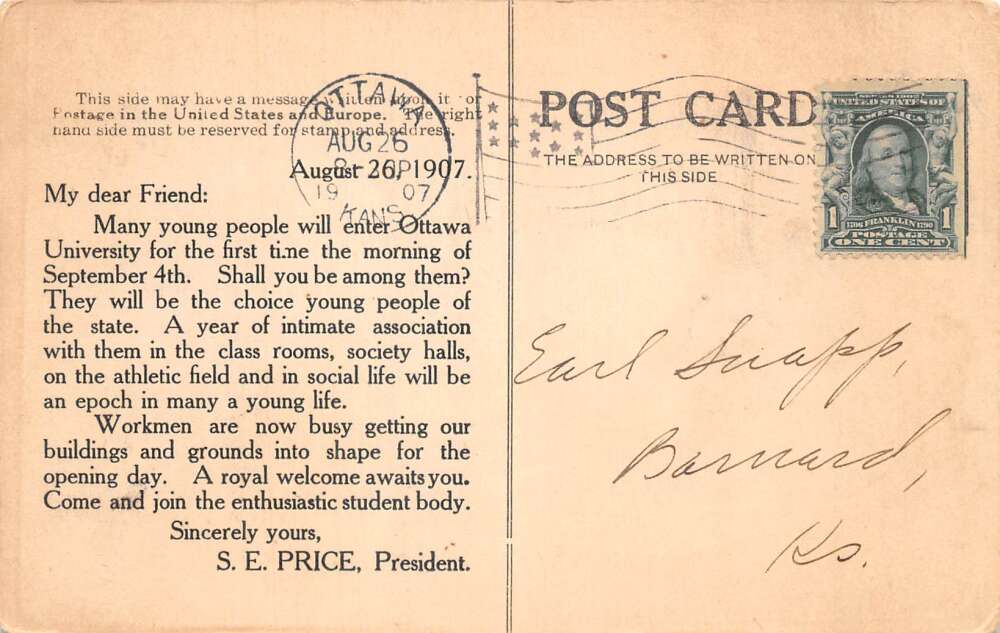 This side may have a message written upon it for
Postage in the United States and Europe. The right
hand side must be reserved for stamp and address.
OTTAWA
AUG 26
P
19 07
KANS.
August 26, 1907.
My dear Friend:
Many young people will enter Ottawa
University for the first time the morning of
September 4th. Shall you be among them?
They will be the choice young people of
the state. A year of intimate association
with them in the class rooms, society halls,
on the athletic field and in social life will be
an epoch in many a young life.
Workmen are now busy getting our
buildings and grounds into shape for the
opening day. A royal welcome awaits you.
Come and join the enthusiastic student body.
Sincerely yours,
S. E. PRICE, President.
POST CARD
THE ADDRESS TO BE WRITTEN ON
THIS SIDE
SERIES 1902
UNITED STATES OF
AMERICA
1 1
1706 FRANKLIN 1790
POSTAGE
ONE CENT
Earl Snapp,
Barnard,
Ks.